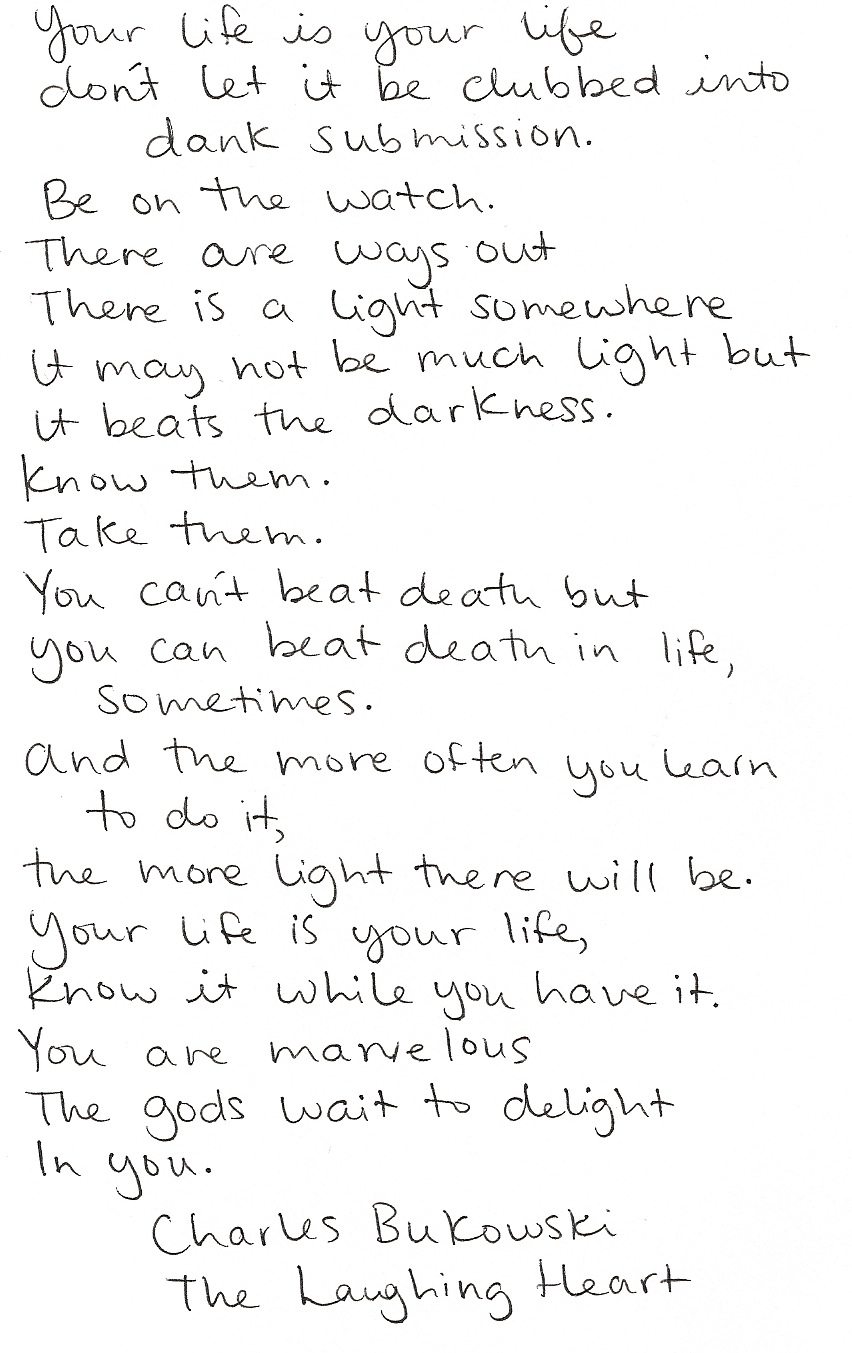 Your life is your life
don't let it be clubbed into
dank submission.
Be on the watch.
There are ways out
There is a light somewhere
It may not be much light but
it beats the darkness.
Know them.
Take them.
You can't beat death but
you can beat death in life,
sometimes.
and the more often you learn
to do it,
the more light there will be.
Your life is your life,
Know it while you have it.
You are marvelous
The gods wait to delight
In you.
Charles Bukowski
The Laughing Heart